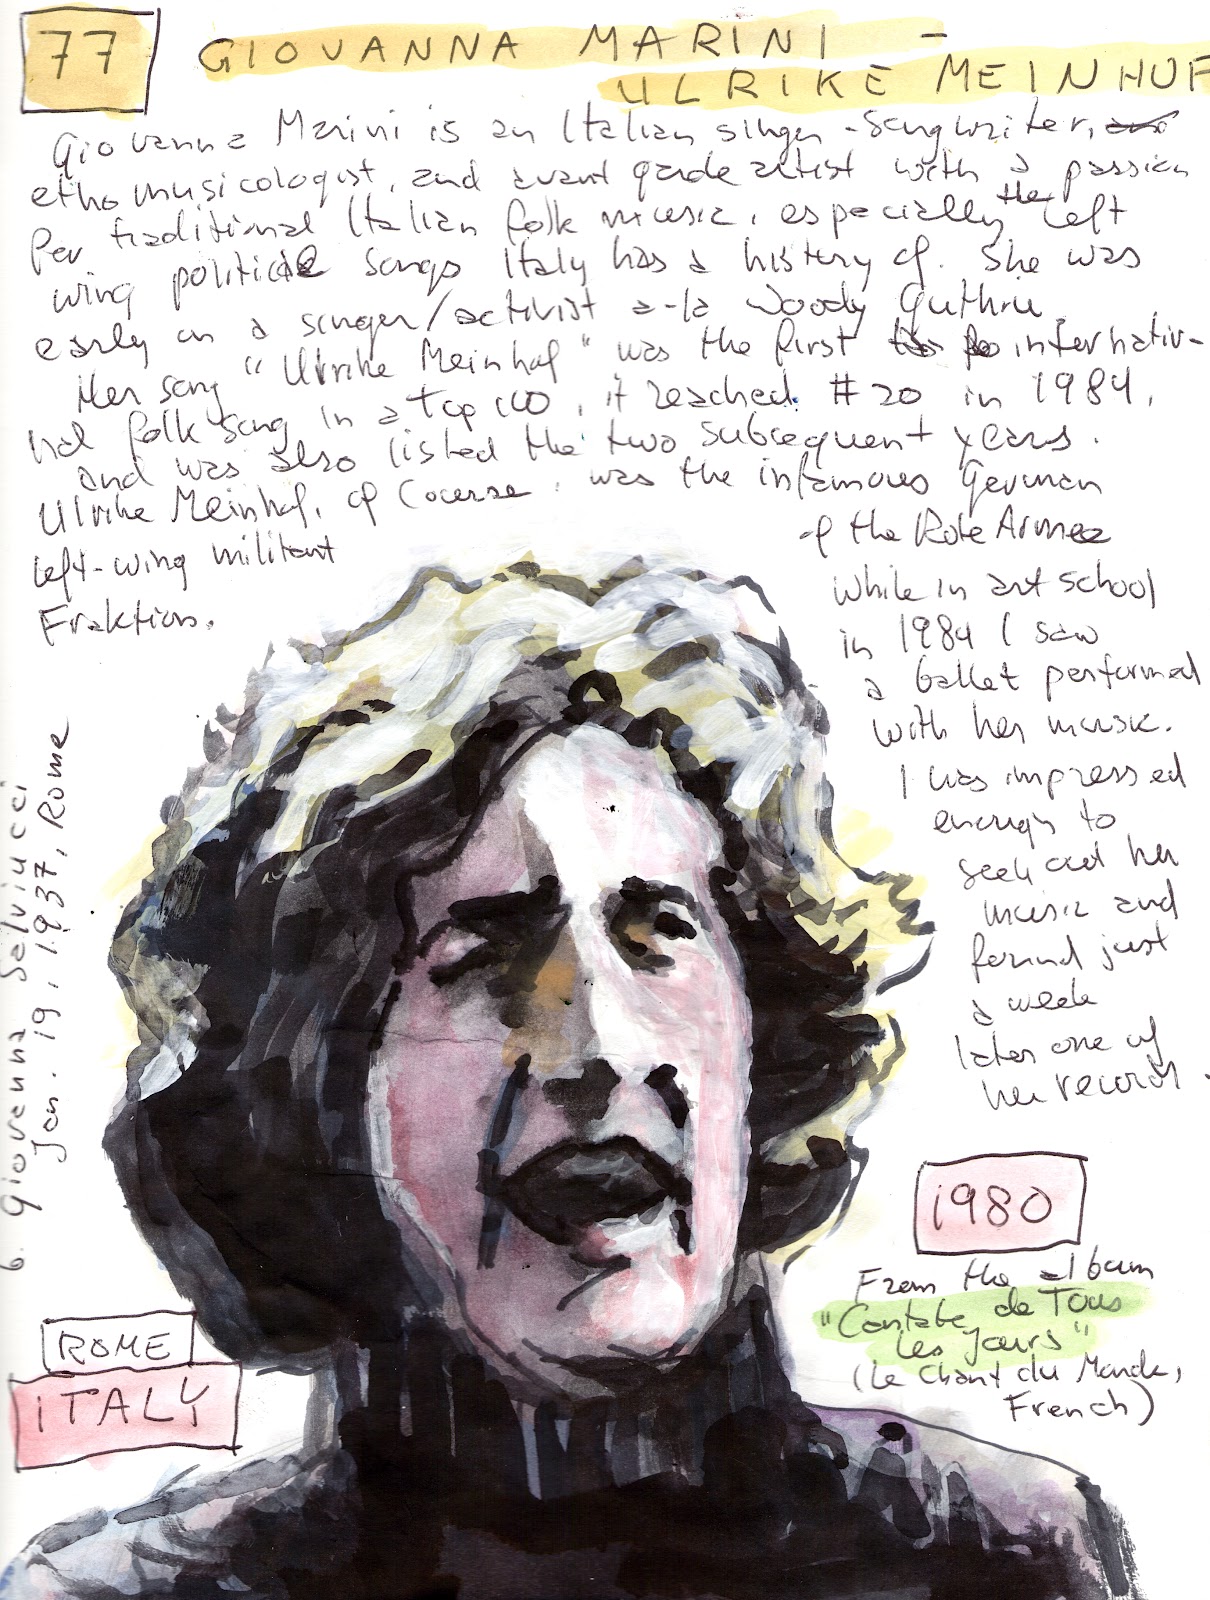 77
GIOVANNA MARINI -
ULRIKE MEINHOF
Giovanna Marini is an Italian singer-songwriter,
ethomusicologist, and avant garde artist with a passion
for traditional Italian folk music, especially the left
wing political songs Italy has a history of. She was
early on a singer/activist a-la Woody Guthrie.
Her song "Ulrike Meinhof" was the first internatio-
nal folk song in a top 100, it reached #20 in 1984,
and was also listed the two subsequent years.
Ulrike Meinhof, of Course, was the infamous German
left-wing militant of the Rote Armee
Fraktion.
While in art school
in 1984 I saw
a ballet performed
with her music.
I was impressed
enough to
seek out her
music and
found just
a week
later one of
her records.
6. Giovanna Salviucci
Jan. 19, 1937, Rome
1980
From the album
"Cantate de Tous
les Jours"
(Le Chant du Monde,
French)
ROME
ITALY